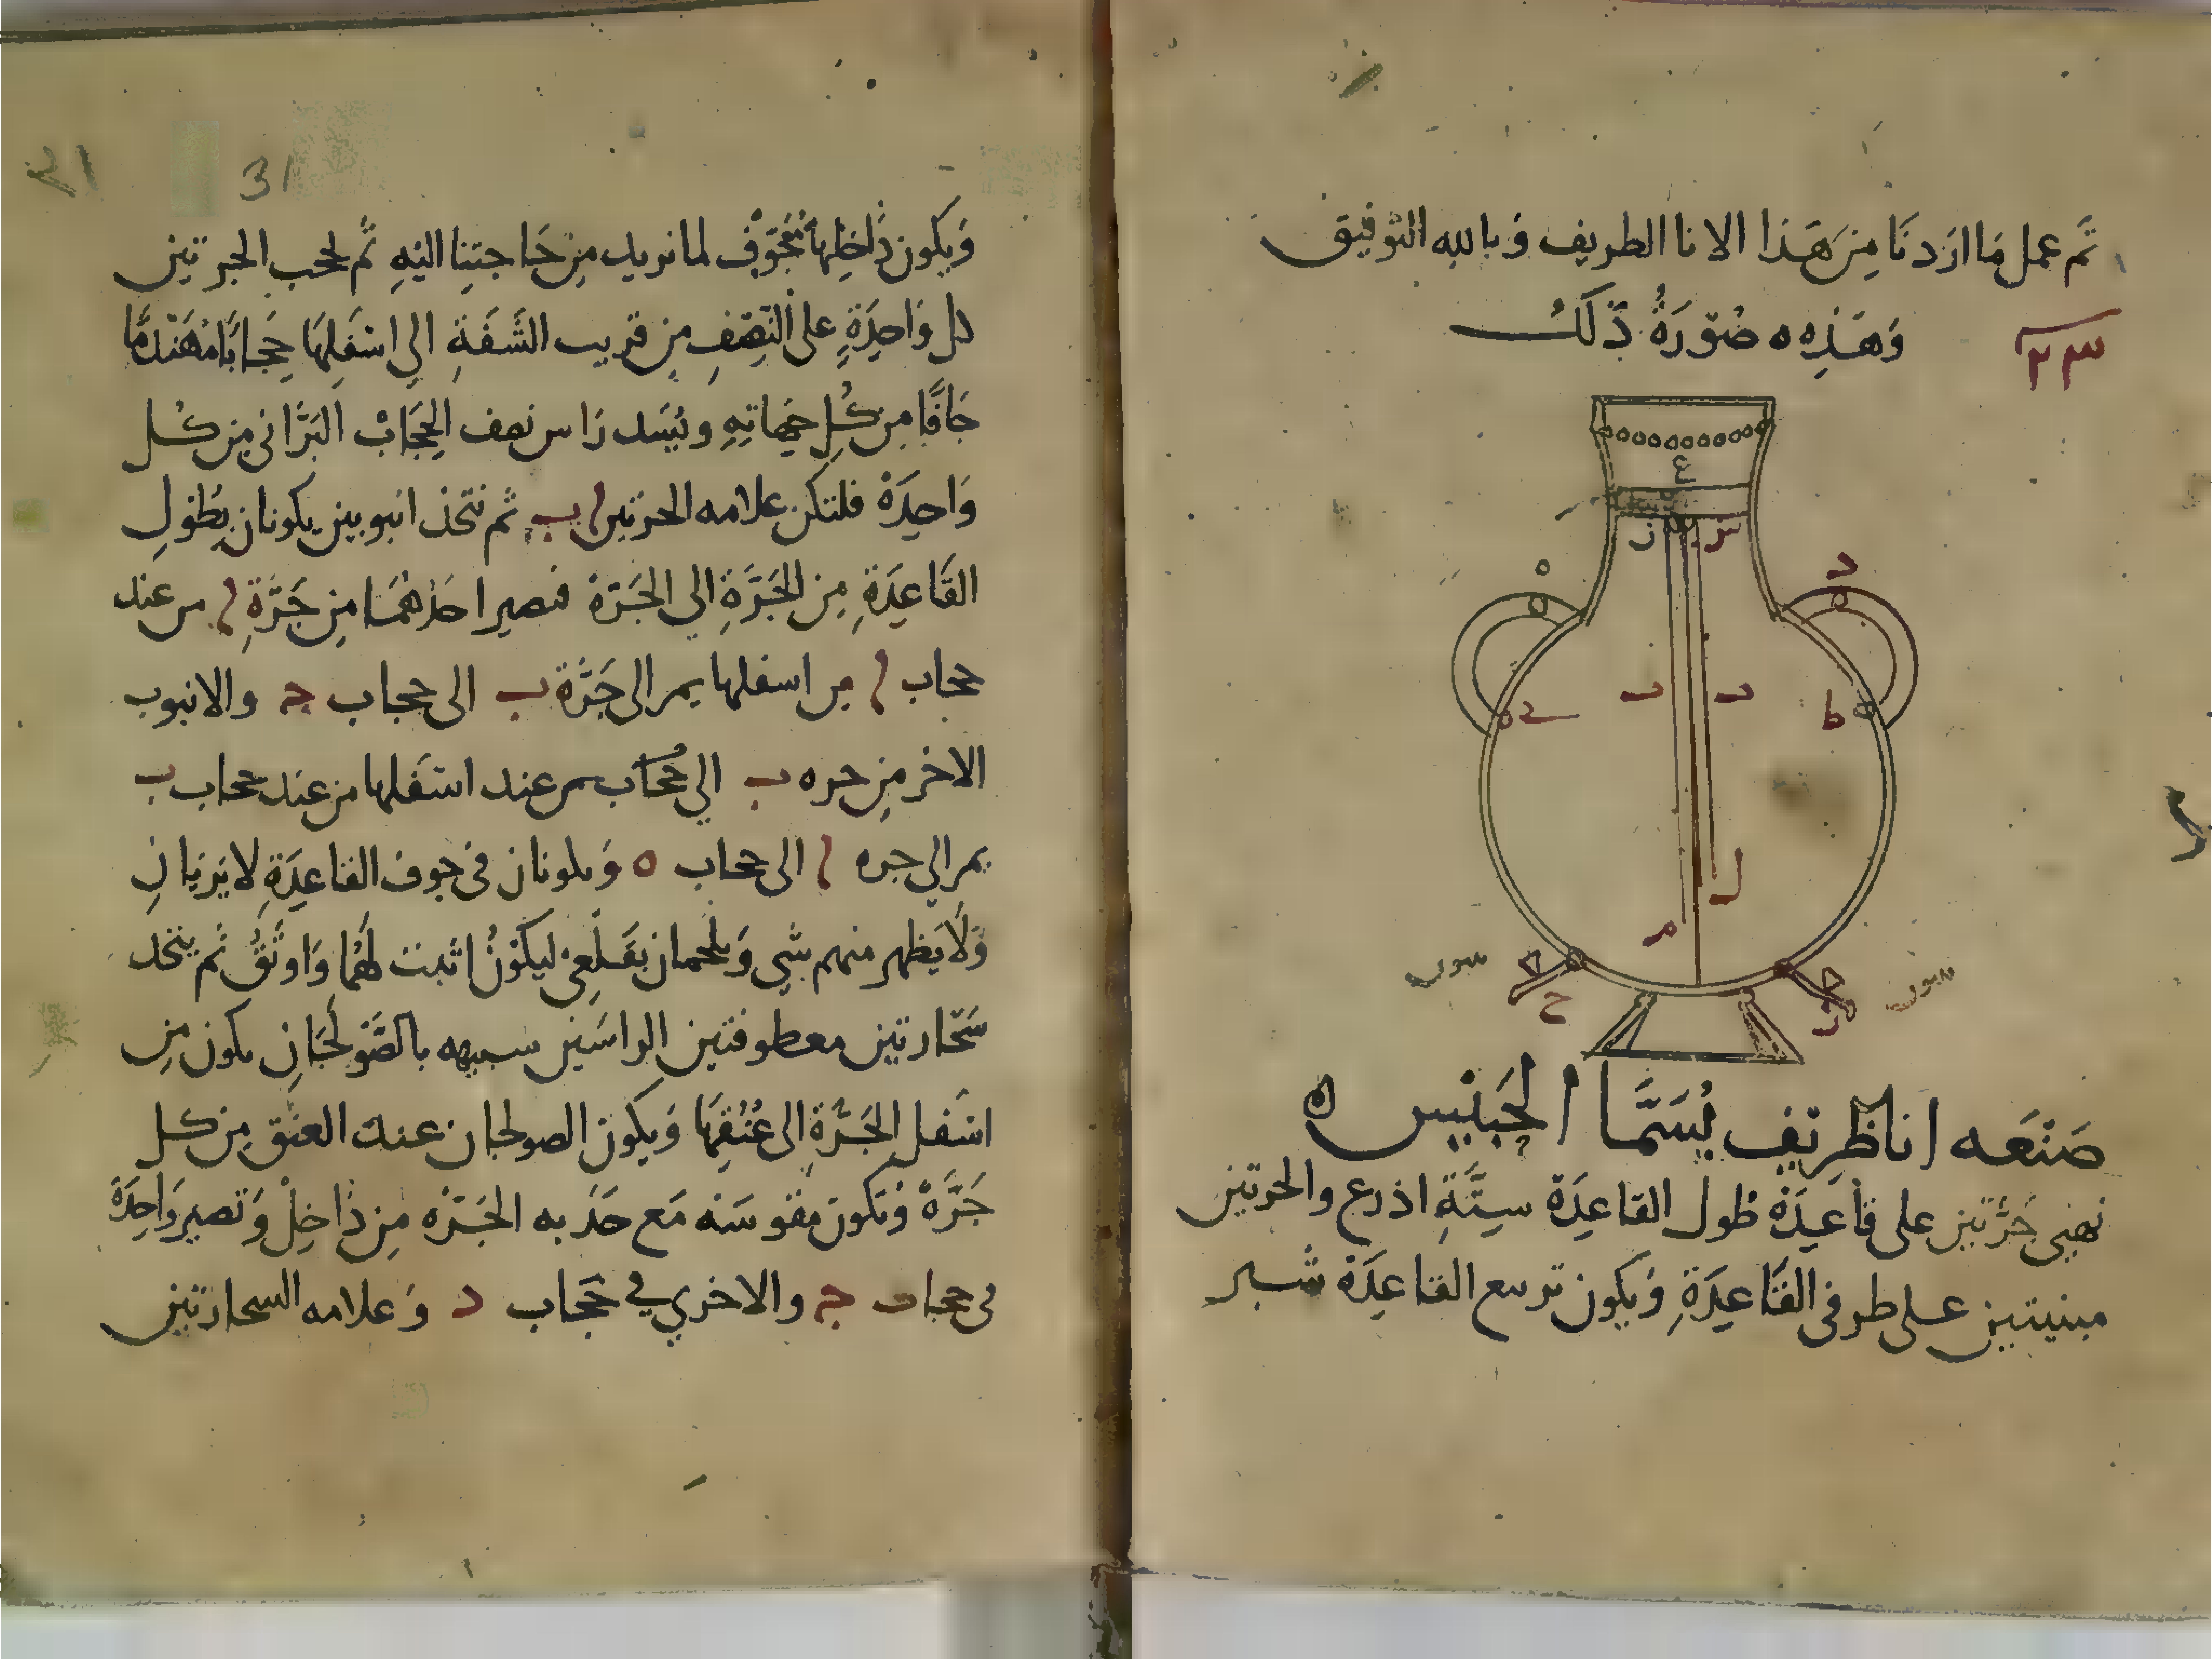 تَم عمل مَا ارَدنَا مِن هَذا الانا الطريف وَبالله التوفيق
وَهَذِه ه صُورَةُ ذَلك
٢٣
ع
ز س
ه د
د د
ي ط
ل
م
ح ز
صَنعَه انا ظَريَف يُسَمَّا الجَبَنيس ه
نهيى جَرَّتين على قاعِدَة طول القاعِدَة سِتَّةِ اذرع والجرتين
مبنيتين على طرفى القَاعِدَةِ وَيكون ترسع القاعِدَة شَبر
٣١
31
وَيكون دَاخِلها مُجَوَّف لما نريد مِن حَاجتِنا اليَهِ ثَم لحجب الجرتين
كل وَاحِدَةٍ على النّصِفِ مِن قريب الشَفَةِ الى اسْفَلِهَا حِجابًا مُهَندمًا
جَافًا مِن كُلِ جهاتِهِ ويُسَد رَاس نصف الحِجَابْ البَرَّانى مِن كُل
وَاحِدَة فلتكن علامه الجرتين ا ب ثم نتخذ انبوبين يكونان بِطُولِ
القَاعِدَةِ مِن الجَرَّةِ الى الجَرّة فنصير احَدُهُمَا مِن جَرَّةِ ا من عند
حجاب ا من اسفلها يمر الى جَرَّة ب الى حجاب ج والانبوب
الاخر مِن جره ب الى حُجَاب يمر عند اسَفلها من عند حجاب ب
يمر الى جره ا الى حجاب ه وَيكونان فى جوف القاعِدَةِ لا يَريَانِ
وَلَا يَظهر منهم شَي وَيلحمان بقَلعِي ليكَوْنُ اثبت لهُمَا وَاوثَقُ ثَم يتخد
سَحّارتين معطوفتين الراسَين سبيهه بالصَّوَلجَانِ يكون مِن
اسَفل الجَرَّةِ الى عُنُقِهَا وَيكون الصولجان عند العنق مِن كل
جَرَّةً وَتكون مقوسَه مَع حَدَبه الجَرّه مِن دَاخِلْ وَتصير وَاحِدَةً
فى حجاب ج والاخري فى حَجَاب د وَعلامه السحارتين